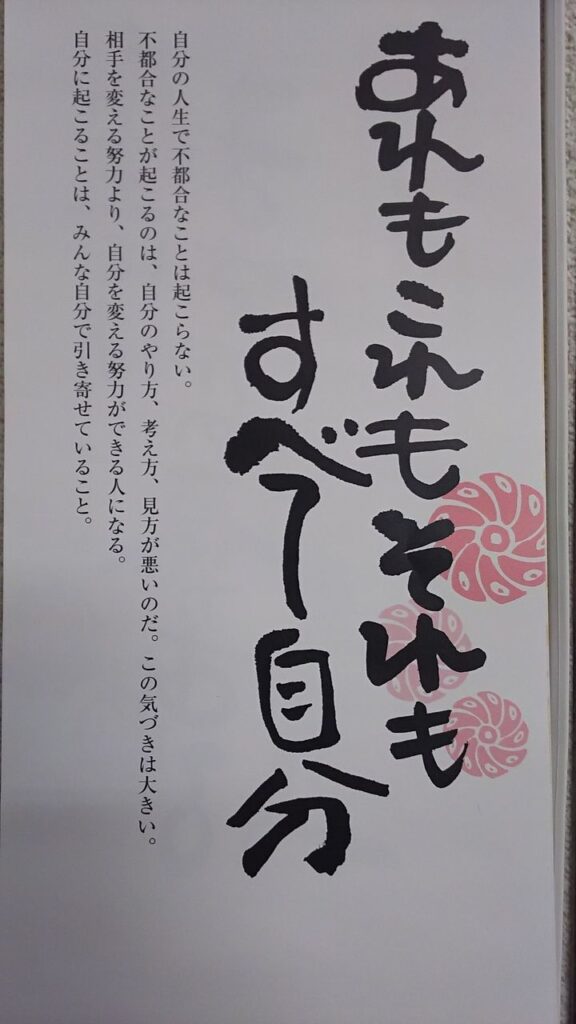 あれもこれもそれも
すべて自分
自分の人生で不都合なことは起こらない。
不都合なことが起こるのは、自分のやり方、考え方、見方が悪いのだ。この気づきは大きい。
相手を変える努力より、自分を変える努力ができる人になる。
自分に起こることは、みんな自分で引き寄せていること。